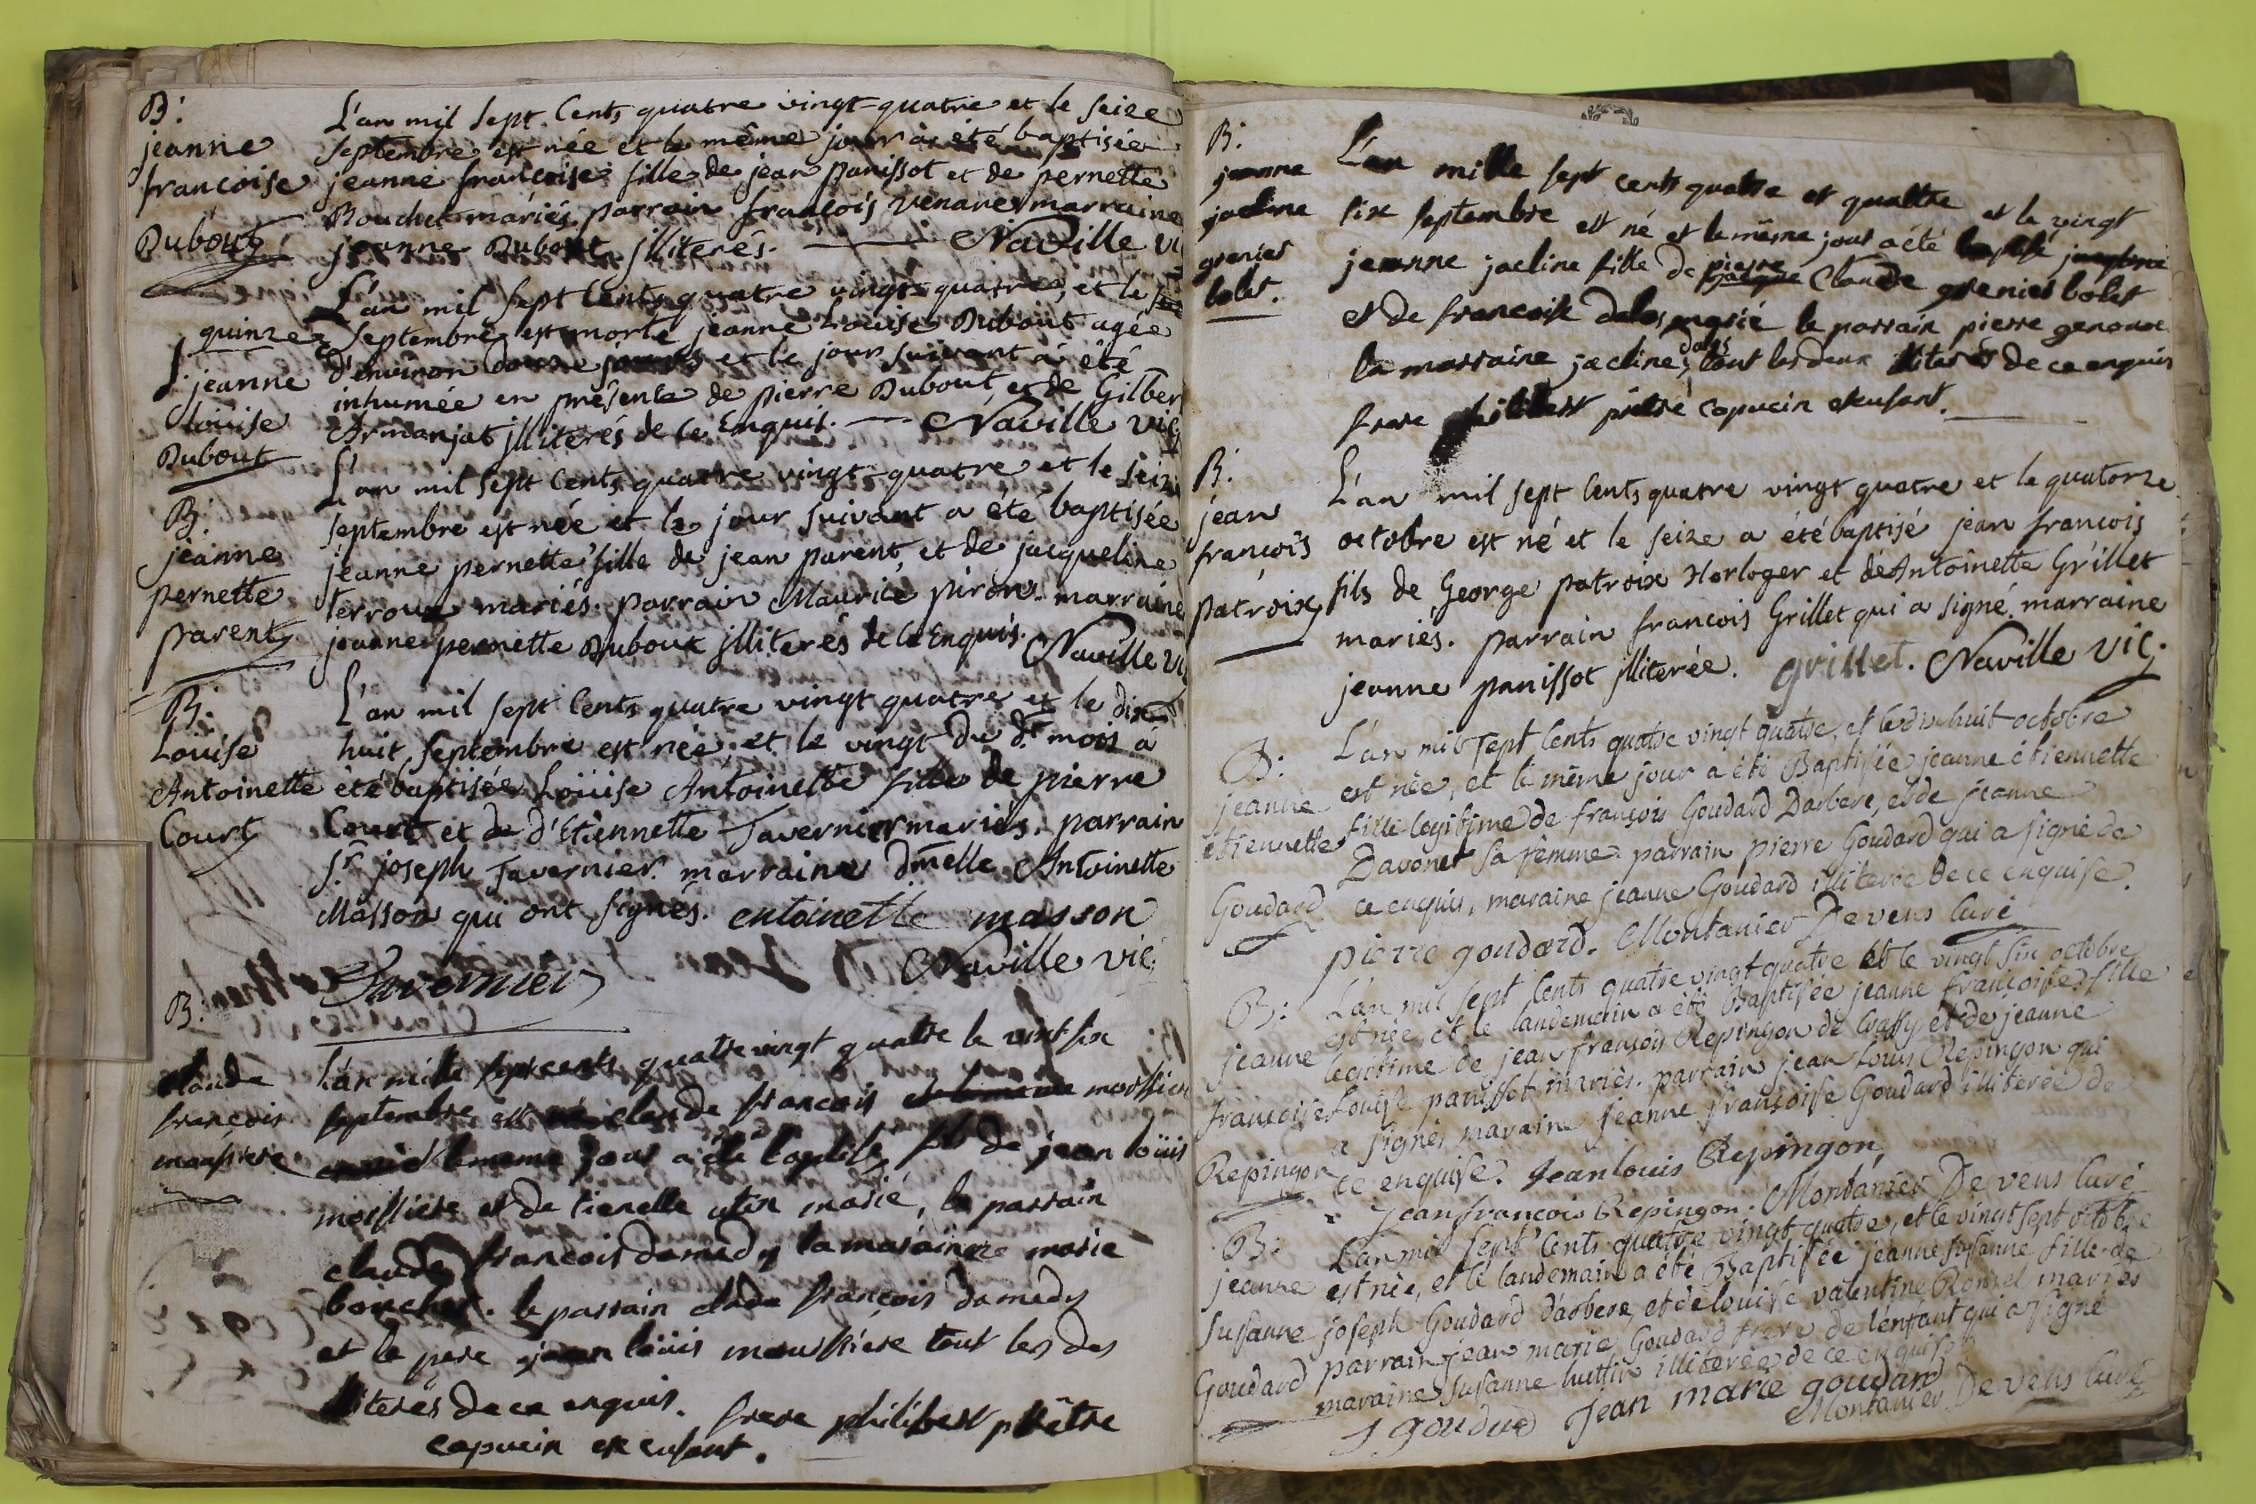 B:
jeanne
francoise
Dubout
L'an mil sept Cents quatre vingt-quatre et le seize
septembre est née et le même jour à été baptisée
jeanne francoise fille de jean panissot et de pernette
Bouchet mariés, parrain francois venane marraine
jeanne Dubout illiterés. Naville
L'an mil sept Cents quatre vingt quatre, et le
quinze septembre est morte jeanne Louise Dubout agée
d'environ et le jour suivant à été
inhumée en présente de pierre Dubout, et de Gilber
Armanjat illiterés de Ce Enquis. Naville vic
jeanne
Louise
Dubout
B:
jeanne
pernette
parent
L'an mil sept Cents quatre vingt-quatre et le seize
septembre est née et le jour suivant a été baptisée
jeanne pernette fille de jean parent, et de jacqueline
Terroux mariés. parrain Maurice piron. marraine
jeanne pernette Dubout illiterés de Ce Enquis. Naville
B:
Louise
Antoinette
Court
L'an mil sept Cents quatre vingt quatre et le dix
huit septembre est née et le vingt du dt mois à
été baptisée Louise Antoinette fille de pierre
Court et de d'Etiennette Tavernier mariés. parrain
sr. joseph Tavernier. marraine dmelle Antoinette
Masson qui ont signés. entoinette masson
Tavernier Naville vic.
B:
claude
françois
moussiere
L'an mille sept cents quatre vingt quatre le vint six
septembre est né claude francois et le meme
le meme jour a été baptisé fils de jean loüis
et de marié, le parrain
claude francois damedy la maraine marie
bouchet. le parrain clade françois damedy
et le pere jean loüis tout les des
literés de ce enquis. frere philibert prêtre
capucin
B:
jeanne
jacline
grenier
bolet.
L'an mille sept cents quatre et quattre et le vingt
six septembre est né et le même jour a été baptisé
jeanne jacline fille de pierre Claude grenier bolet
et de francoise dalos marié le parrain pierre
la marraine jacline dalos tout les deux literés de ce enquis
frere prêtre capucin
B:
jean
françois
patroix
L'an mil sept Cents quatre vingt quatre et le quatorze
octobre est né et le seize a été baptisé jean francois
fils de George patroix Horloger et de Antoinette Grillet
mariés. parrain francois Grillet qui a signé. marraine
jeanne panissot illiterée. grillet. Naville vic.
B:
jeanne
étiennette
Goudard
L'an mil sept Cents quatre vingt quatre, et le dix huit octobre
est née, et le même jour a été Baptisée jeanne étiennette
fille legitime de françois Goudard Darbere, et de jeanne
Davonet sa femme. parrain pierre Goudard qui a signé de
ce enquis, maraine jeanne Goudard illiterée de ce enquise.
pierre goudard. Montanier De vens Curé
B:
jeanne
francoise
Repingon
L'an mil sept Cents quatre vingt quatre et le vingt six octobre
est née, et le landemain a été Baptisée jeanne francoise fille
legitime de jean françois Repingon de Crassy et de jeanne
Louise panissot mariés. parrain jean Louis Repingon qui
a signés, maraine jeanne françoise Goudard illiterée de
ce enquise. jean louis Repingon,
jean francois Repingon. Montanier De vens Curé
B:
jeanne
susanne
Goudard
L'an mil sept Cents quatre vingt quatre, et le vingt sept octobre
est née, et le landemain a été Baptisée jeanne susanne fille de
joseph Goudard d'arbere, et de louise valentine mariés
parrain jean marie Goudard frere de l'enfant qui a signé
maraine susanne huttin illiterée de ce enquise
j goudard jean marie goudard
Montanier De vens Curé